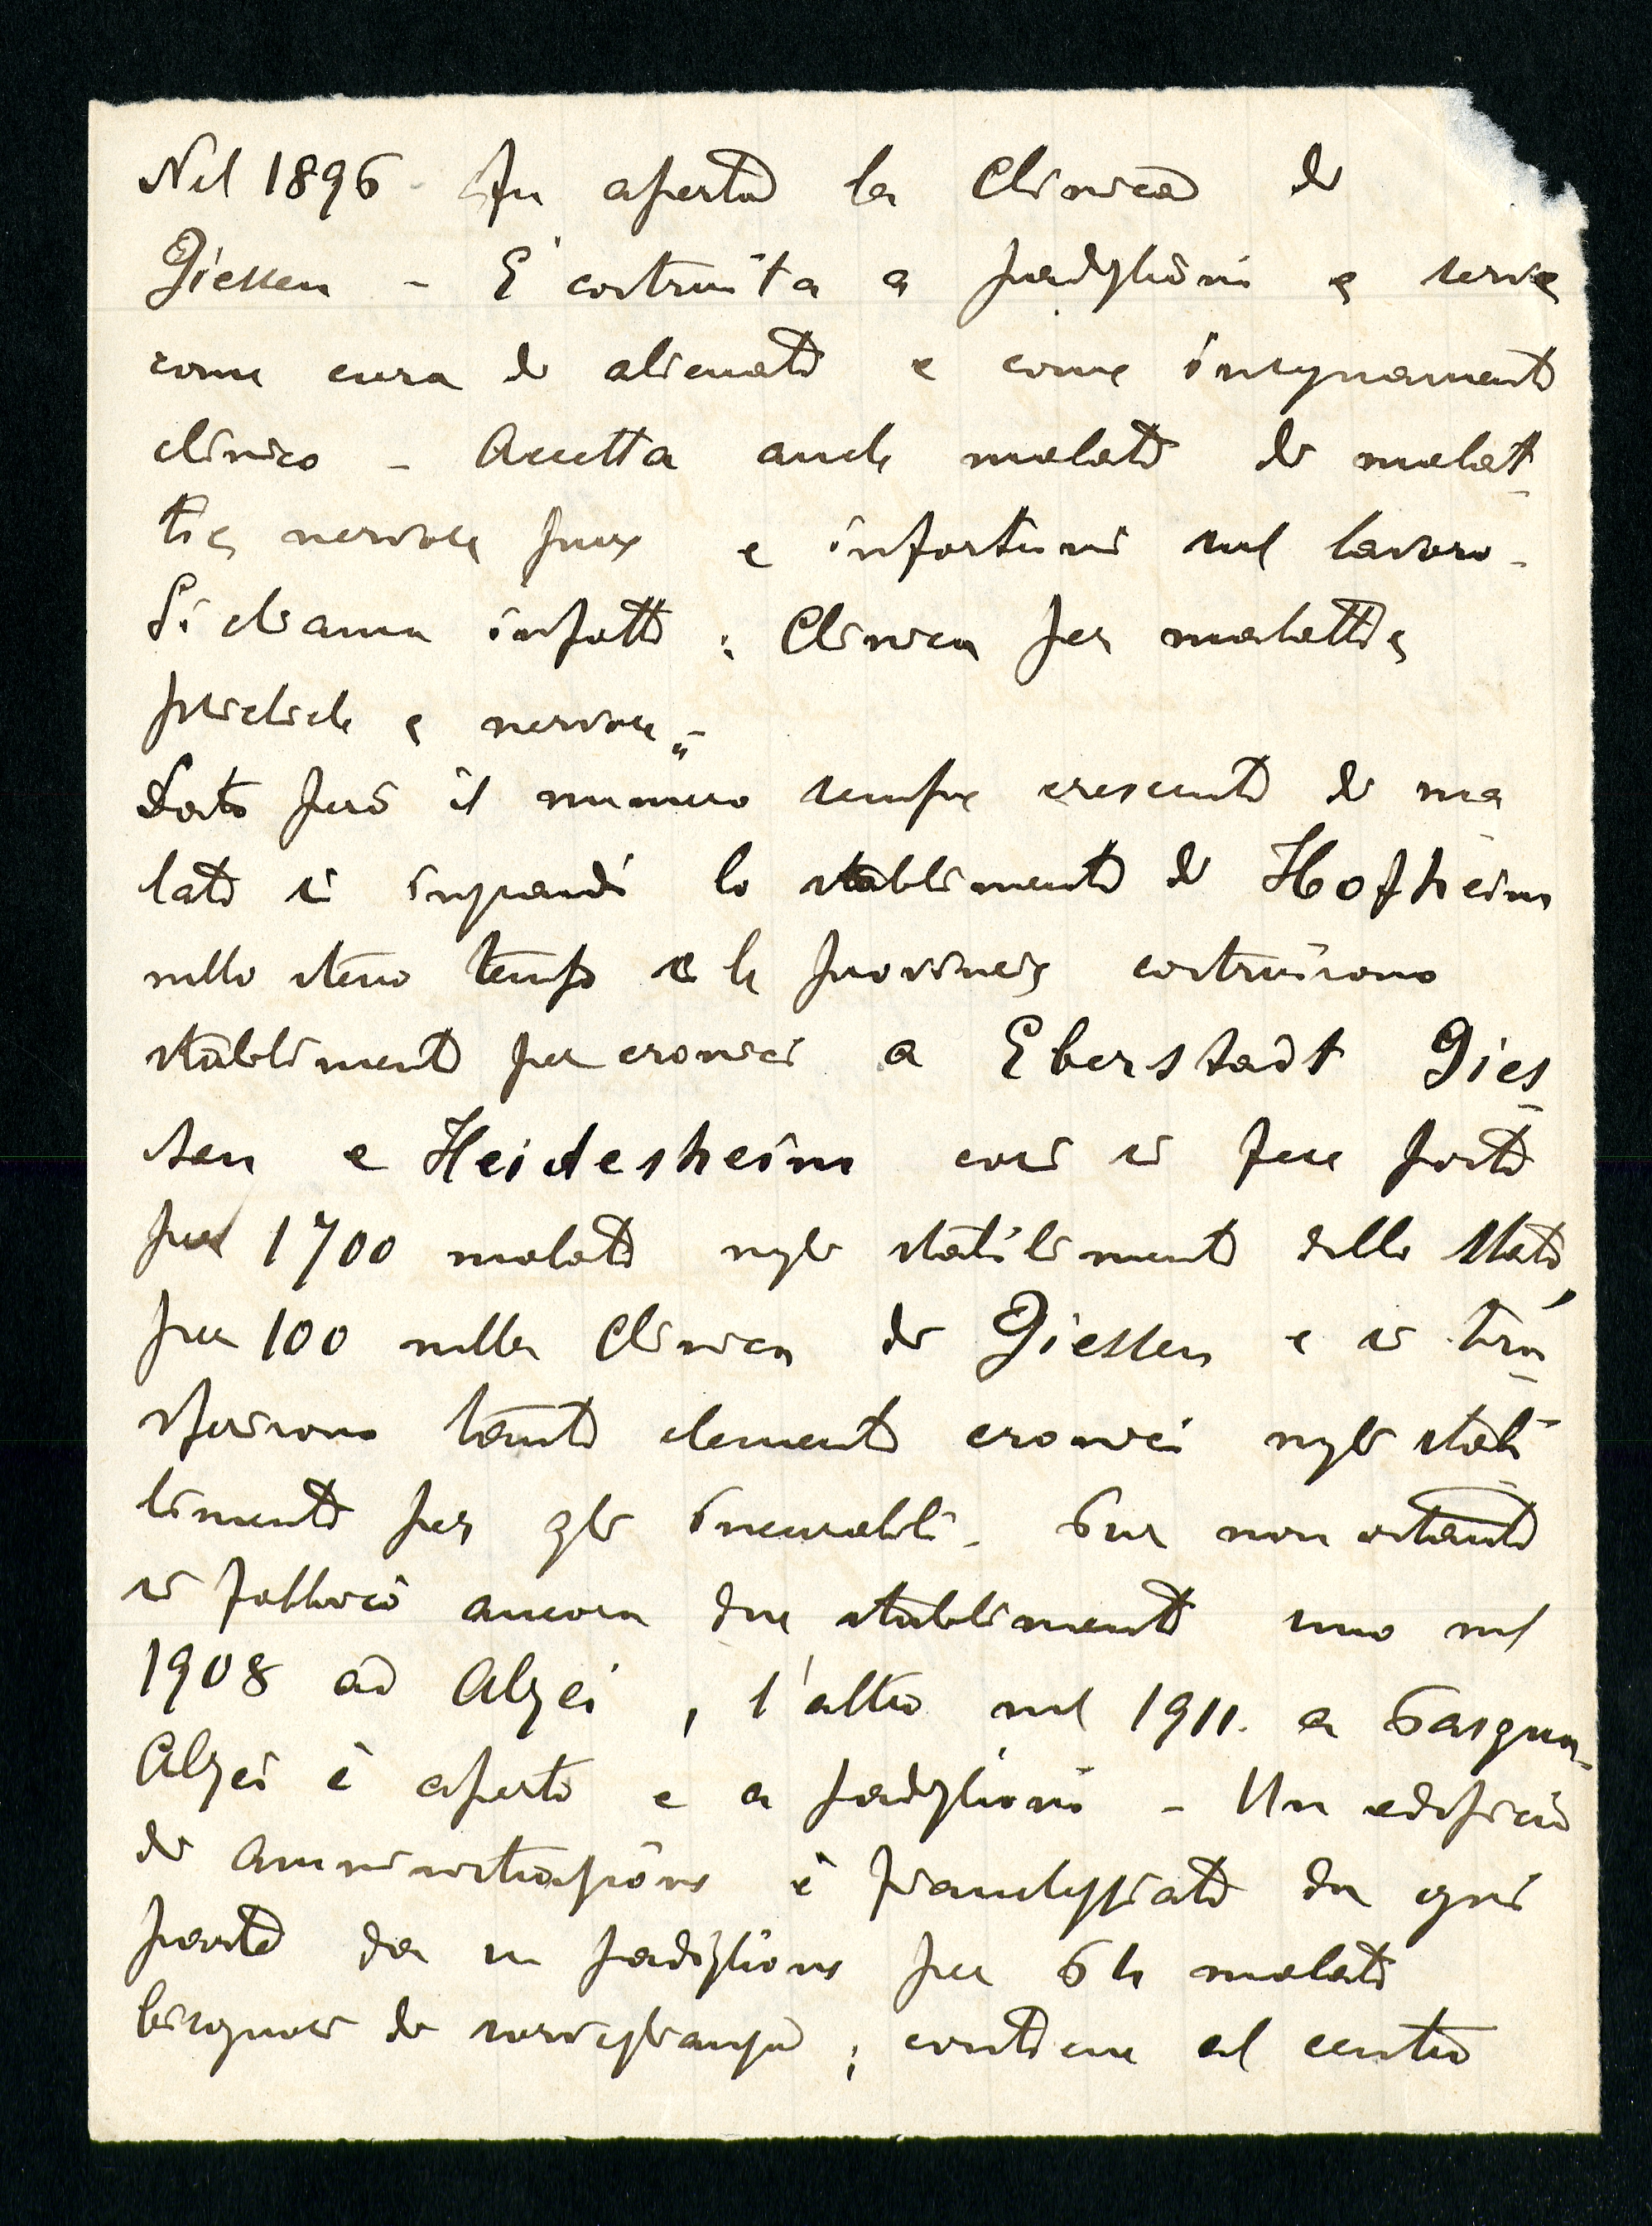 Nel 1896 - fu aperta la Clinica di
Giessen - E' costruita a padiglioni e serve
come cura di alienati e come insegnamento
clinico - Accetta anche malati di malat-
tie nervose pure e infortuni sul lavoro -
Si chiama infatti : Clinica per malattie
psichiche e nervose" -
Dato però il numero sempre crescente di ma
lati si ingrandì lo stabilimento di Hofheim
nello stesso tempo e le provincie costruirono
stabilimenti per cronici a Eberstadt Gies-
sen e Heidesheim così si fece posto
per 1700 malati negli stabilimenti dello Stato,
per 100 nella Clinica di Giessen e si tra-
sferirono tanti elementi cronici negli stabi-
limenti per gli incurabili - Ciò non ostante
si fabbricò ancora due stabilimenti uno nel
1908 ad Alzei , l'altro nel 1911. a
Alzei è aperto e a padiglioni - Un edificio
di amministrazione è fiancheggiato da ogni
parte da un padiglione per 64 malati
bisognosi di sorveglianza ; contiene al centro